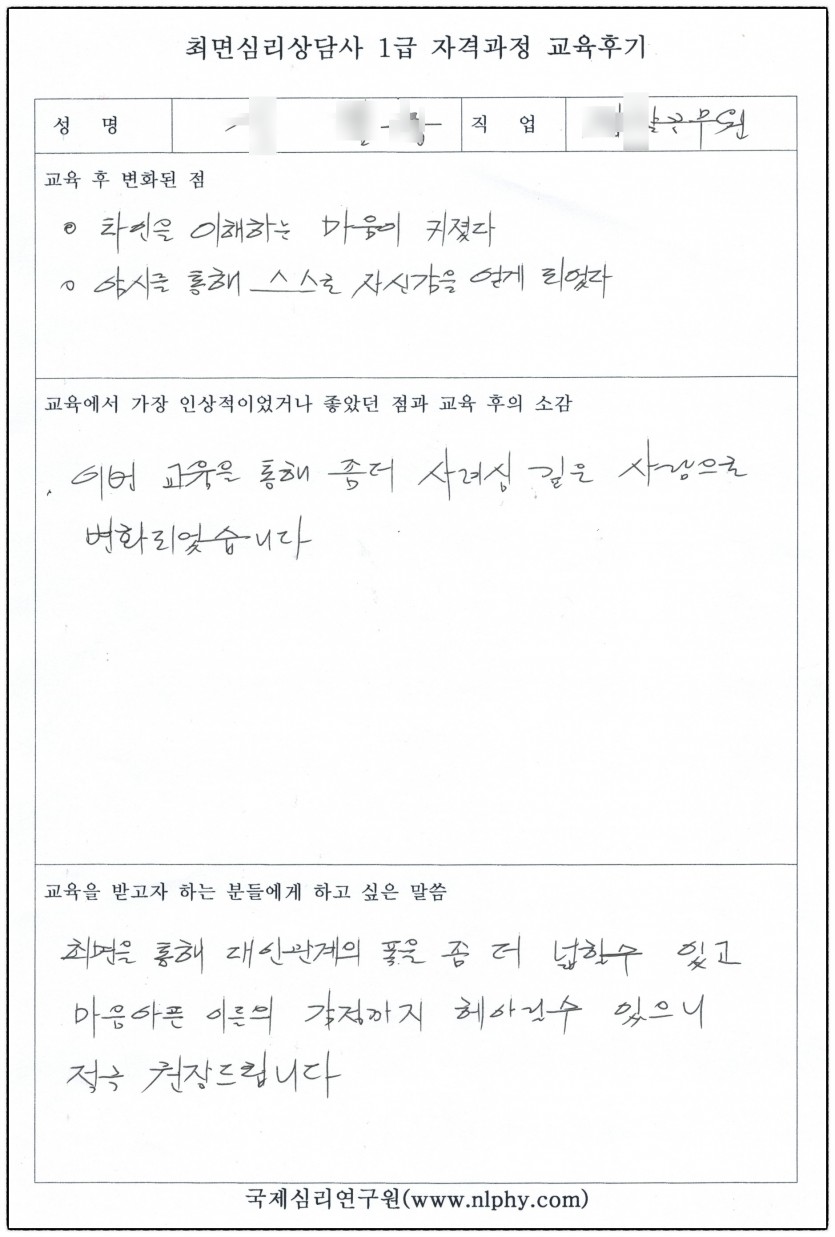 최면심리상담사 1급 자격과정 교육후기
성 명 직 업 공무원
교육 후 변화된 점
타인을 이해하는 마음이 커졌다
암시를 통해 스스로 자신감을 얻게 되었다
교육에서 가장 인상적이었거나 좋았던 점과 교육 후의 소감
이번 교육을 통해 좀더 사려심 깊은 사람으로
변화되었습니다
교육을 받고자 하는 분들에게 하고 싶은 말씀
최면을 통해 대인관계의 폭을 좀 더 넓힐수 있고
마음아픈 이들의 감정까지 헤아릴수 있으니
적극 권장드립니다
국제심리연구원(www.nlphy.com)